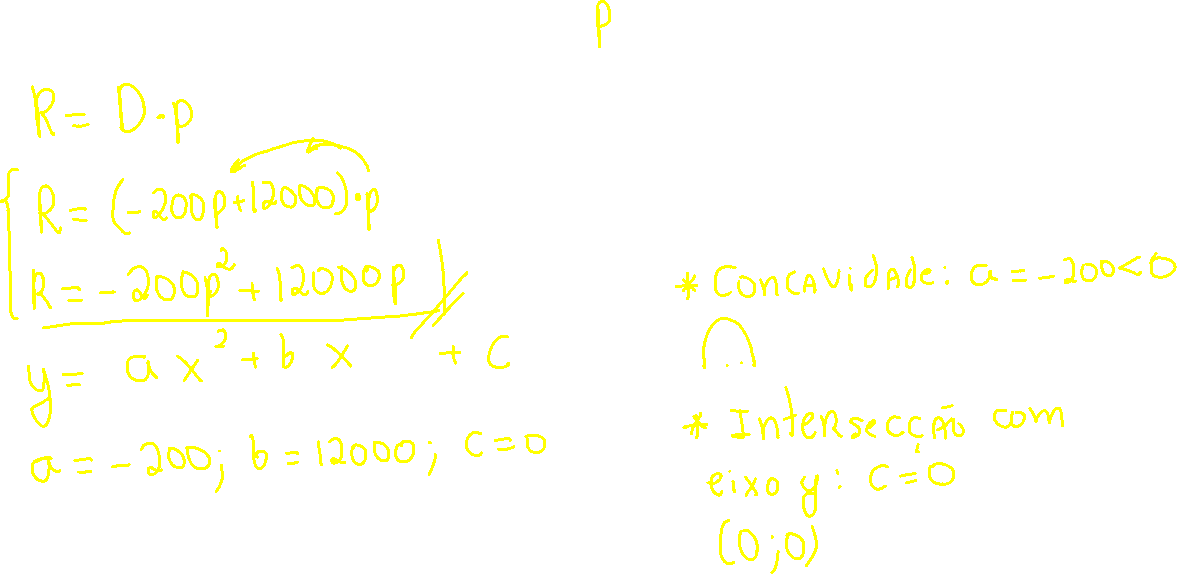 p
R = D·p
R = (-200p+12000)·p
R = -200p² + 12000p
y = ax² + bx + c
a = -200; b = 12000; c = 0
* Concavidade: a = -200 < 0
* Intersecção com
eixo y: c = 0
(0;0)